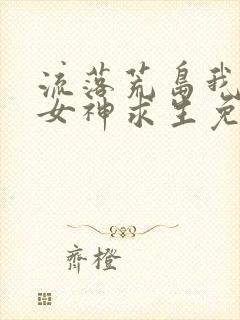 流落荒岛我
女神求生免
齊橙